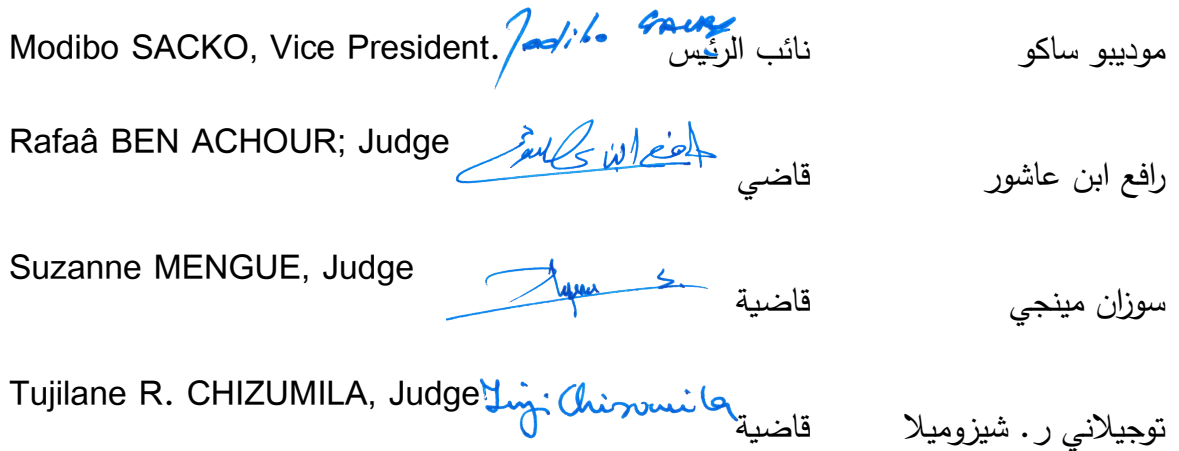 Modibo SACKO, Vice President. Modibo SACKO نائب الرئيس موديبو ساكو
Rafaâ BEN ACHOUR; Judge قاضي رافع ابن عاشور
Suzanne MENGUE, Judge قاضية سوزان مينجي
Tujilane R. CHIZUMILA, Judge Tuji Chizoumila قاضية توجيلاني ر. شيزوميلا